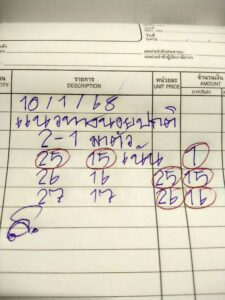 วันที่
DATE
รายการ
DESCRIPTION
หน่วยละ
UNIT PRICE
จำนวนเงิน
AMOUNT
10/1/68
แนวทางหวยปกติ
2-1 มาตัว
25 15 เน้น 1
26 16 25 15
27 17 26 16